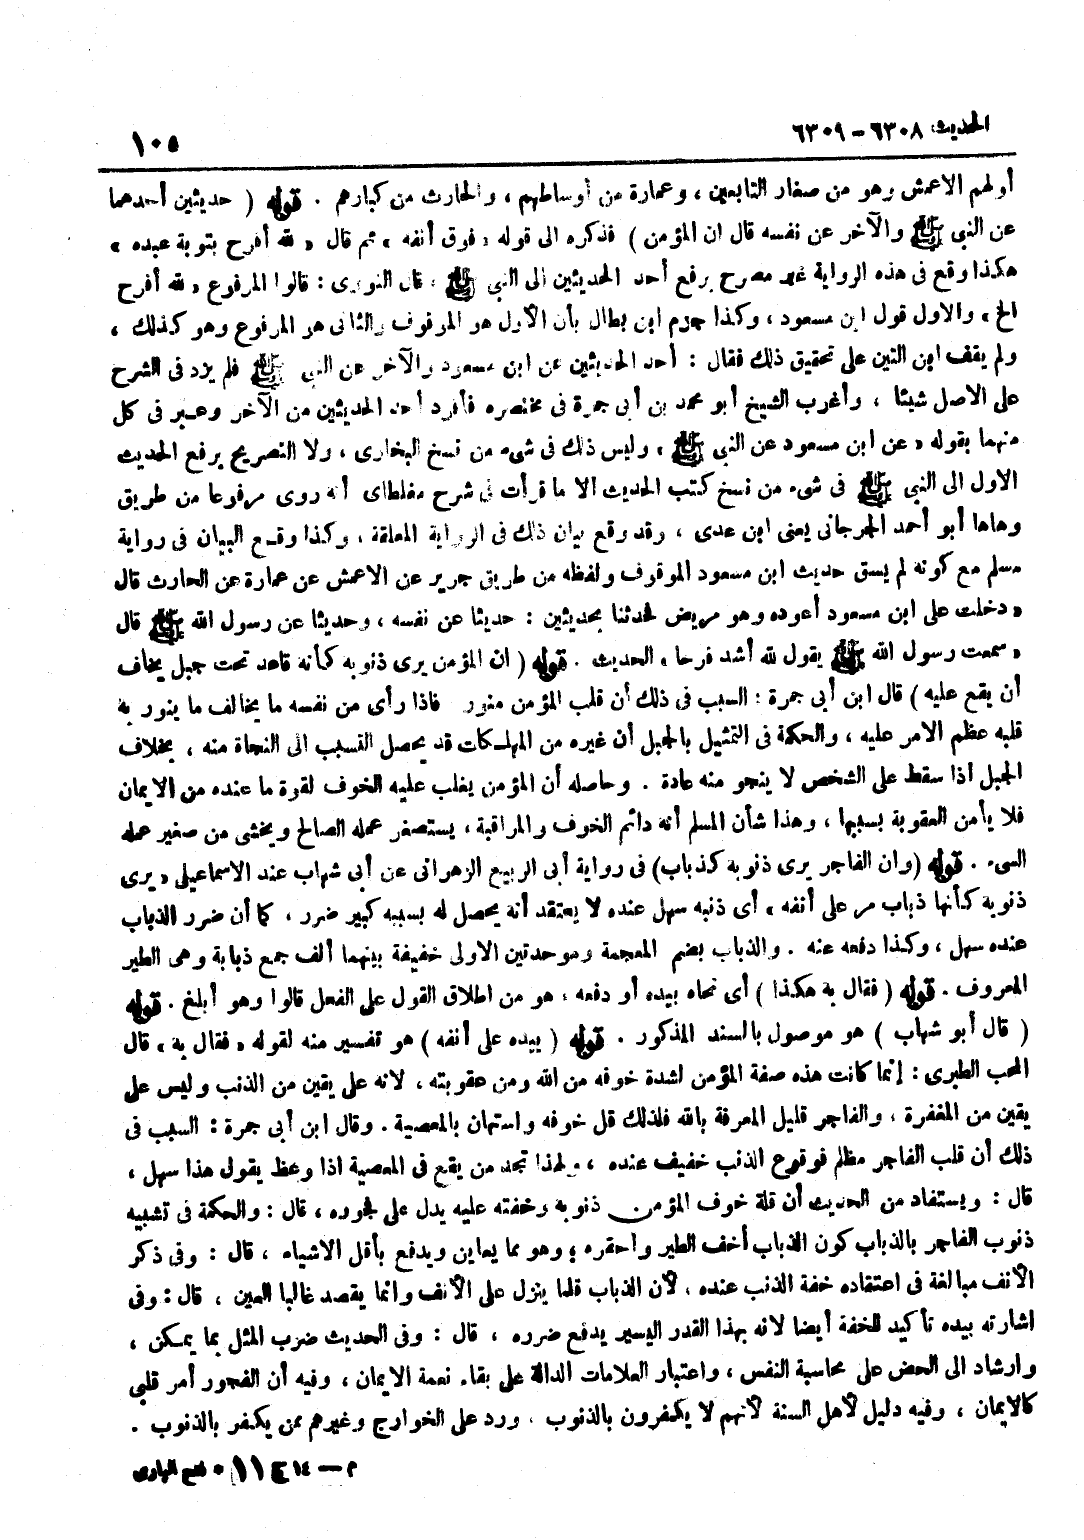 الحديث ٦٣٠٨ – ٦٣٠٩ ١٠٥
أولهم الاعمش وهو من صغار التابعين ، وعمارة من أوساطهم ، والحارث من كبارهم . قوله ( حديثين أحدهما
عن النبي ﷺ والآخر عن نفسه قال ان المؤمن ) فذكره الى قوله « فوق أنفه » ثم قال « لله أفرح بتوبة عبده »
هكذا وقع فى هذه الرواية غير مصرح برفع أحد الحديثين الى النبي ﷺ ، قال النووى : قالوا المرفوع « لله أفرح
الخ » والاول قول ابن مسعود ، وكذا جزم ابن بطال بأن الأول هو الموقوف والثانى هو المرفوع وهو كذلك ،
ولم يقف ابن التين على تحقيق ذلك فقال : أحد الحديثين عن ابن مسعود والآخر عن النبي ﷺ فلم يزد فى الشرح
على الاصل شيئا ، وأغرب الشيخ أبو محمد بن أبى جمرة فى مختصره فأفرد أحد الحديثين من الآخر وعبر فى كل
منهما بقوله « عن ابن مسعود عن النبي ﷺ » وليس ذلك فى شىء من نسخ البخارى ، ولا التصريح برفع الحديث
الاول الى النبي ﷺ فى شىء من نسخ كتب الحديث الا ما قرأت فى شرح مغلطاى أنه روى مرفوعا من طريق
وهاها أبو أحمد الجرجانى يعنى ابن عدى ، وقد وقع بيان ذلك فى الرواية المعلقة ، وكذا وقع البيان فى رواية
مسلم مع كونه لم يسق حديث ابن مسعود الموقوف ولفظه من طريق جرير عن الاعمش عن عمارة عن الحارث قال
« دخلت على ابن مسعود أعوده وهو مريض فحدثنا بحديثين : حديثا عن نفسه ، وحديثا عن رسول الله ﷺ قال
« سمعت رسول الله ﷺ يقول لله أشد فرحا » الحديث . قوله ( ان المؤمن يرى ذنوبه كأنه قاعد تحت جبل يخاف
أن يقع عليه ) قال ابن أبى جمرة : السبب فى ذلك أن قلب المؤمن منور فاذا رأى من نفسه ما يخالف ما ينور به
قلبه عظم الامر عليه ، والحكمة فى التمثيل بالجبل أن غيره من المهلكات قد يحصل التسبب الى النجاة منه ، بخلاف
الجبل اذا سقط على الشخص لا ينجو منه عادة . وحاصله أن المؤمن يغلب عليه الخوف لقوة ما عنده من الايمان
فلا يأمن العقوبة بسببها ، وهذا شأن المسلم أنه دائم الخوف والمراقبة ، يستصغر عمله الصالح ويخشى من صغير عمله
السىء . قوله (وان الفاجر يرى ذنوبه كذباب) فى رواية أبى الربيع الزهرانى عن أبى شهاب عند الاسماعيلى « يرى
ذنوبه كأنها ذباب مر على أنفه » أى ذنبه سهل عنده لا يعتقد أنه يحصل له بسببه كبير ضرر ، كما أن ضرر الذباب
عنده سهل ، وكذا دفعه عنه . والذباب بضم المعجمة وموحدتين الاولى خفيفة بينهما ألف جمع ذبابة وهى الطير
المعروف . قوله ( فقال به هكذا ) أى نحاه بيده أو دفعه ، هو من اطلاق القول على الفعل قالوا وهو أبلغ . قوله
( قال أبو شهاب ) هو موصول بالسند المذكور . قوله ( بيده على أنفه ) هو تفسير منه لقوله « فقال به » قال
المحب الطبرى : إنما كانت هذه صفة المؤمن لشدة خوفه من الله ومن عقوبته ، لانه على يقين من الذنب وليس على
يقين من المغفرة ، والفاجر قليل المعرفة بالله فلذلك قل خوفه واستهان بالمعصية . وقال ابن أبى جمرة : السبب فى
ذلك أن قلب الفاجر مظلم فوقوع الذنب خفيف عنده ، ولهذا تجد من يقع فى المعصية اذا وعظ يقول هذا سهل ،
قال : ويستفاد من الحديث أن قلة خوف المؤمن ذنوبه وخفته عليه يدل على فجوره ، قال : والحكمة فى تشبيه
ذنوب الفاجر بالذباب كون الذباب أخف الطير واحقره ، وهو مما يعاين ويدفع بأقل الاشياء ، قال : وفى ذكر
الأنف مبالغة فى اعتقاده خفة الذنب عنده ، لأن الذباب قلما ينزل على الأنف وانما يقصد غالبا العين ، قال : وفى
اشارته بيده تأكيد للخفة أيضا لانه بهذا القدر اليسير يدفع ضرره ، قال : وفى الحديث ضرب المثل بما يمكن ،
وارشاد الى الحض على محاسبة النفس ، واعتبار العلامات الدالة على بقاء نعمة الايمان ، وفيه أن الفجور أمر قلبى
كالايمان ، وفيه دليل لأهل السنة لأنهم لا يكفرون بالذنوب ، ورد على الخوارج وغيرهم ممن يكفر بالذنوب .
م — ١٤ ج ١١ • فتح البارى